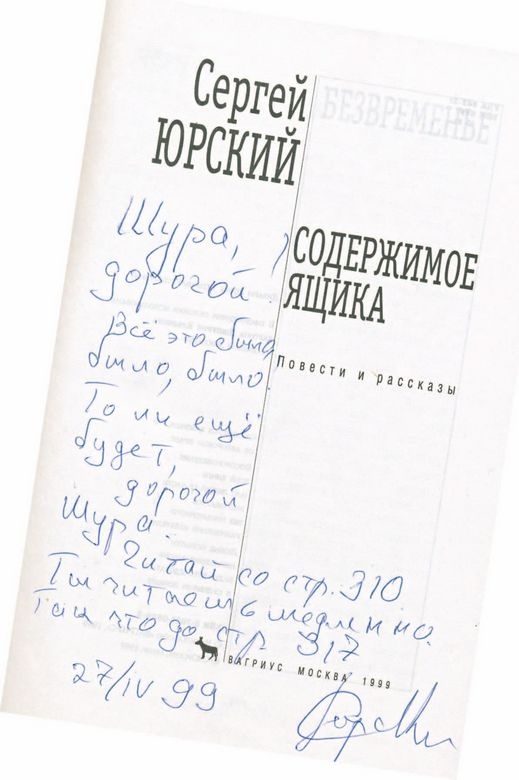 Сергей
ЮРСКИЙ
БЕЗВРЕМЕНЬЕ
Шура,
дорогой.
СОДЕРЖИМОЕ
ЯЩИКА
Повести и рассказы
Всё это было,
было, было.
То ли ещё
будет,
дорогой
Шура.
Читай со стр. 310
Ты читаешь медленно.
Так что до стр 317
ВАГРИУС МОСКВА 1999
27/IV 99